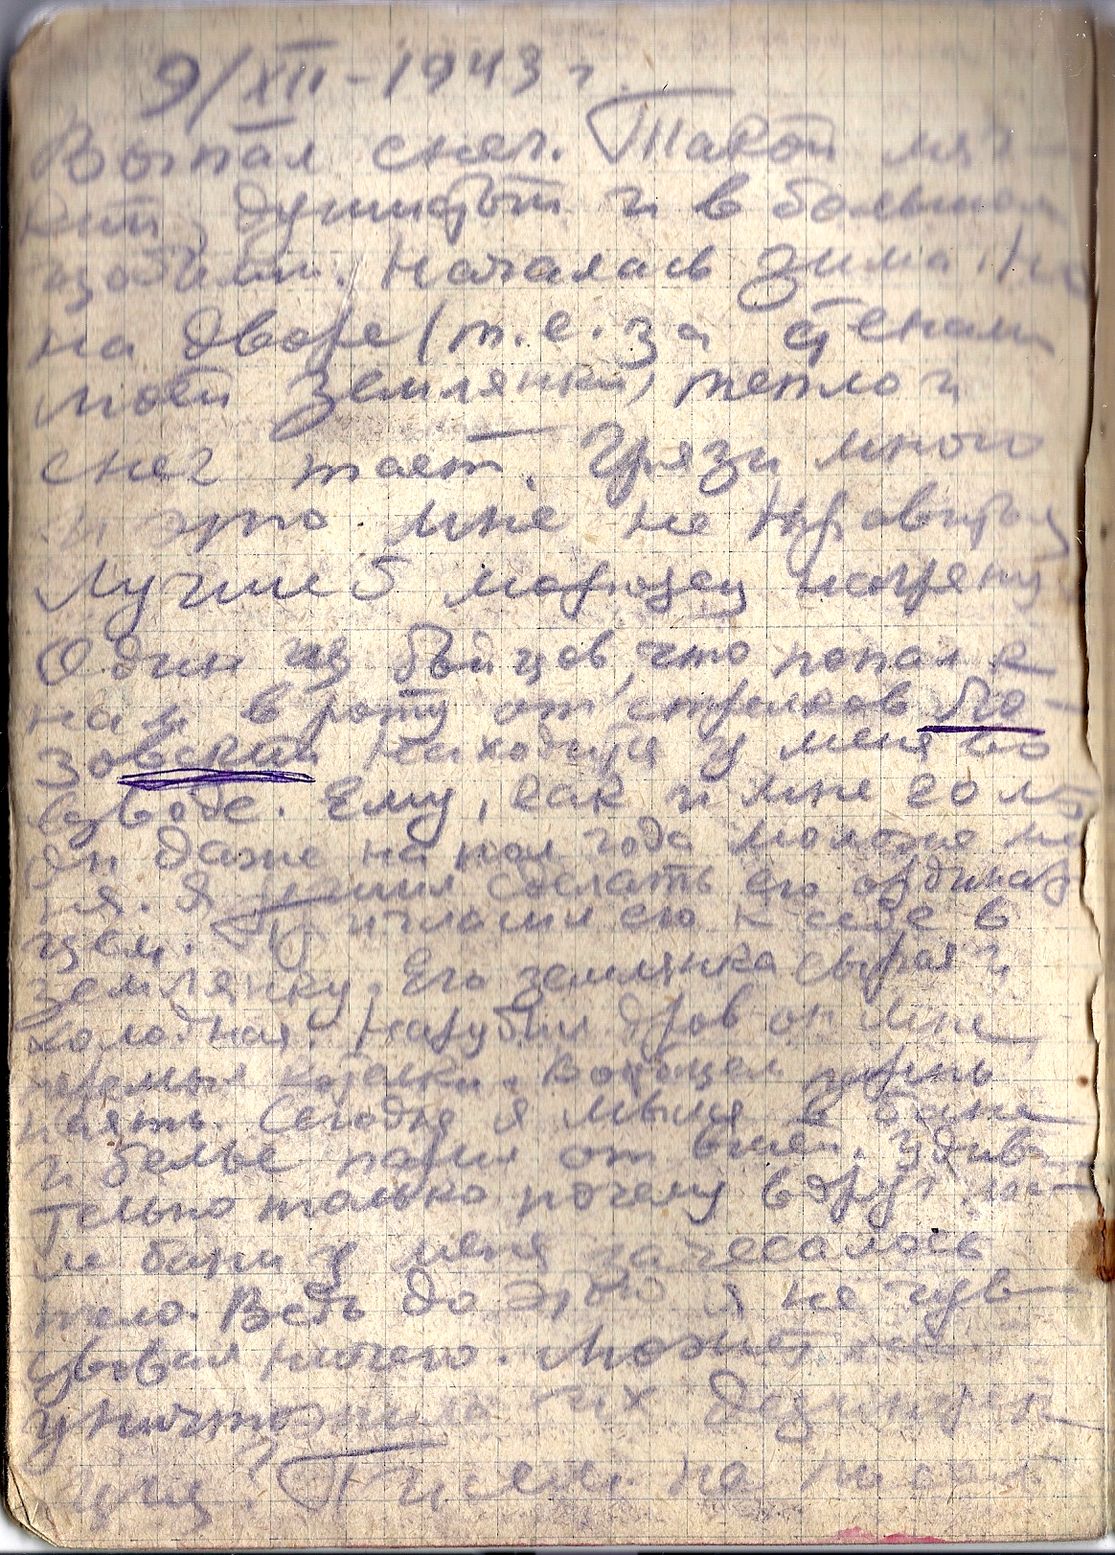 9/XII-1943 г.
Выпал снег. Такой мяг-
кий, душистый и в большом
Началась зима. Но
на дворе (т.е. за стенами
моей землянки, тепло и
снег тает. Грязи много
и это мне не нравится
Лучше б морозец
Один из бойцов, что попал к
нам в роту от стрелков Бо-
зовский находится у меня во
взводе. Ему, как и мне 20 лет
Он даже на пол года моложе ме
ня. Я решил сделать его ординар
цем. Пригласил его к себе в
землянку. Его землянка сырая и
холодная. Нарубил дров он мне,
помыл котелки. Вобщем парень
Сегодня я мылся в бане
и белье парил от вшей. Удиви
тельно только почему вдруг пос-
ле бани у меня зачесалось
тело. Ведь до этого я не чув-
ствовал ничего. Может не
уничтожила их дезинфек-
ция? Писем не писал